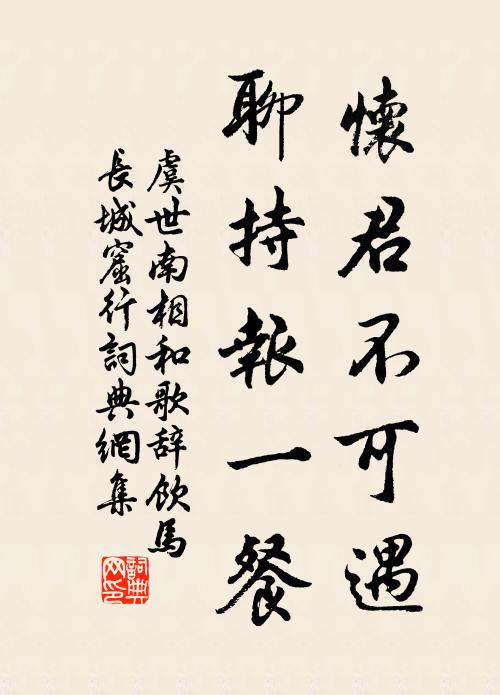 懷君不可遇
聊持報一餐
虞世南相和歌辞飲馬
長城窟行詞典網集
詞典
网印